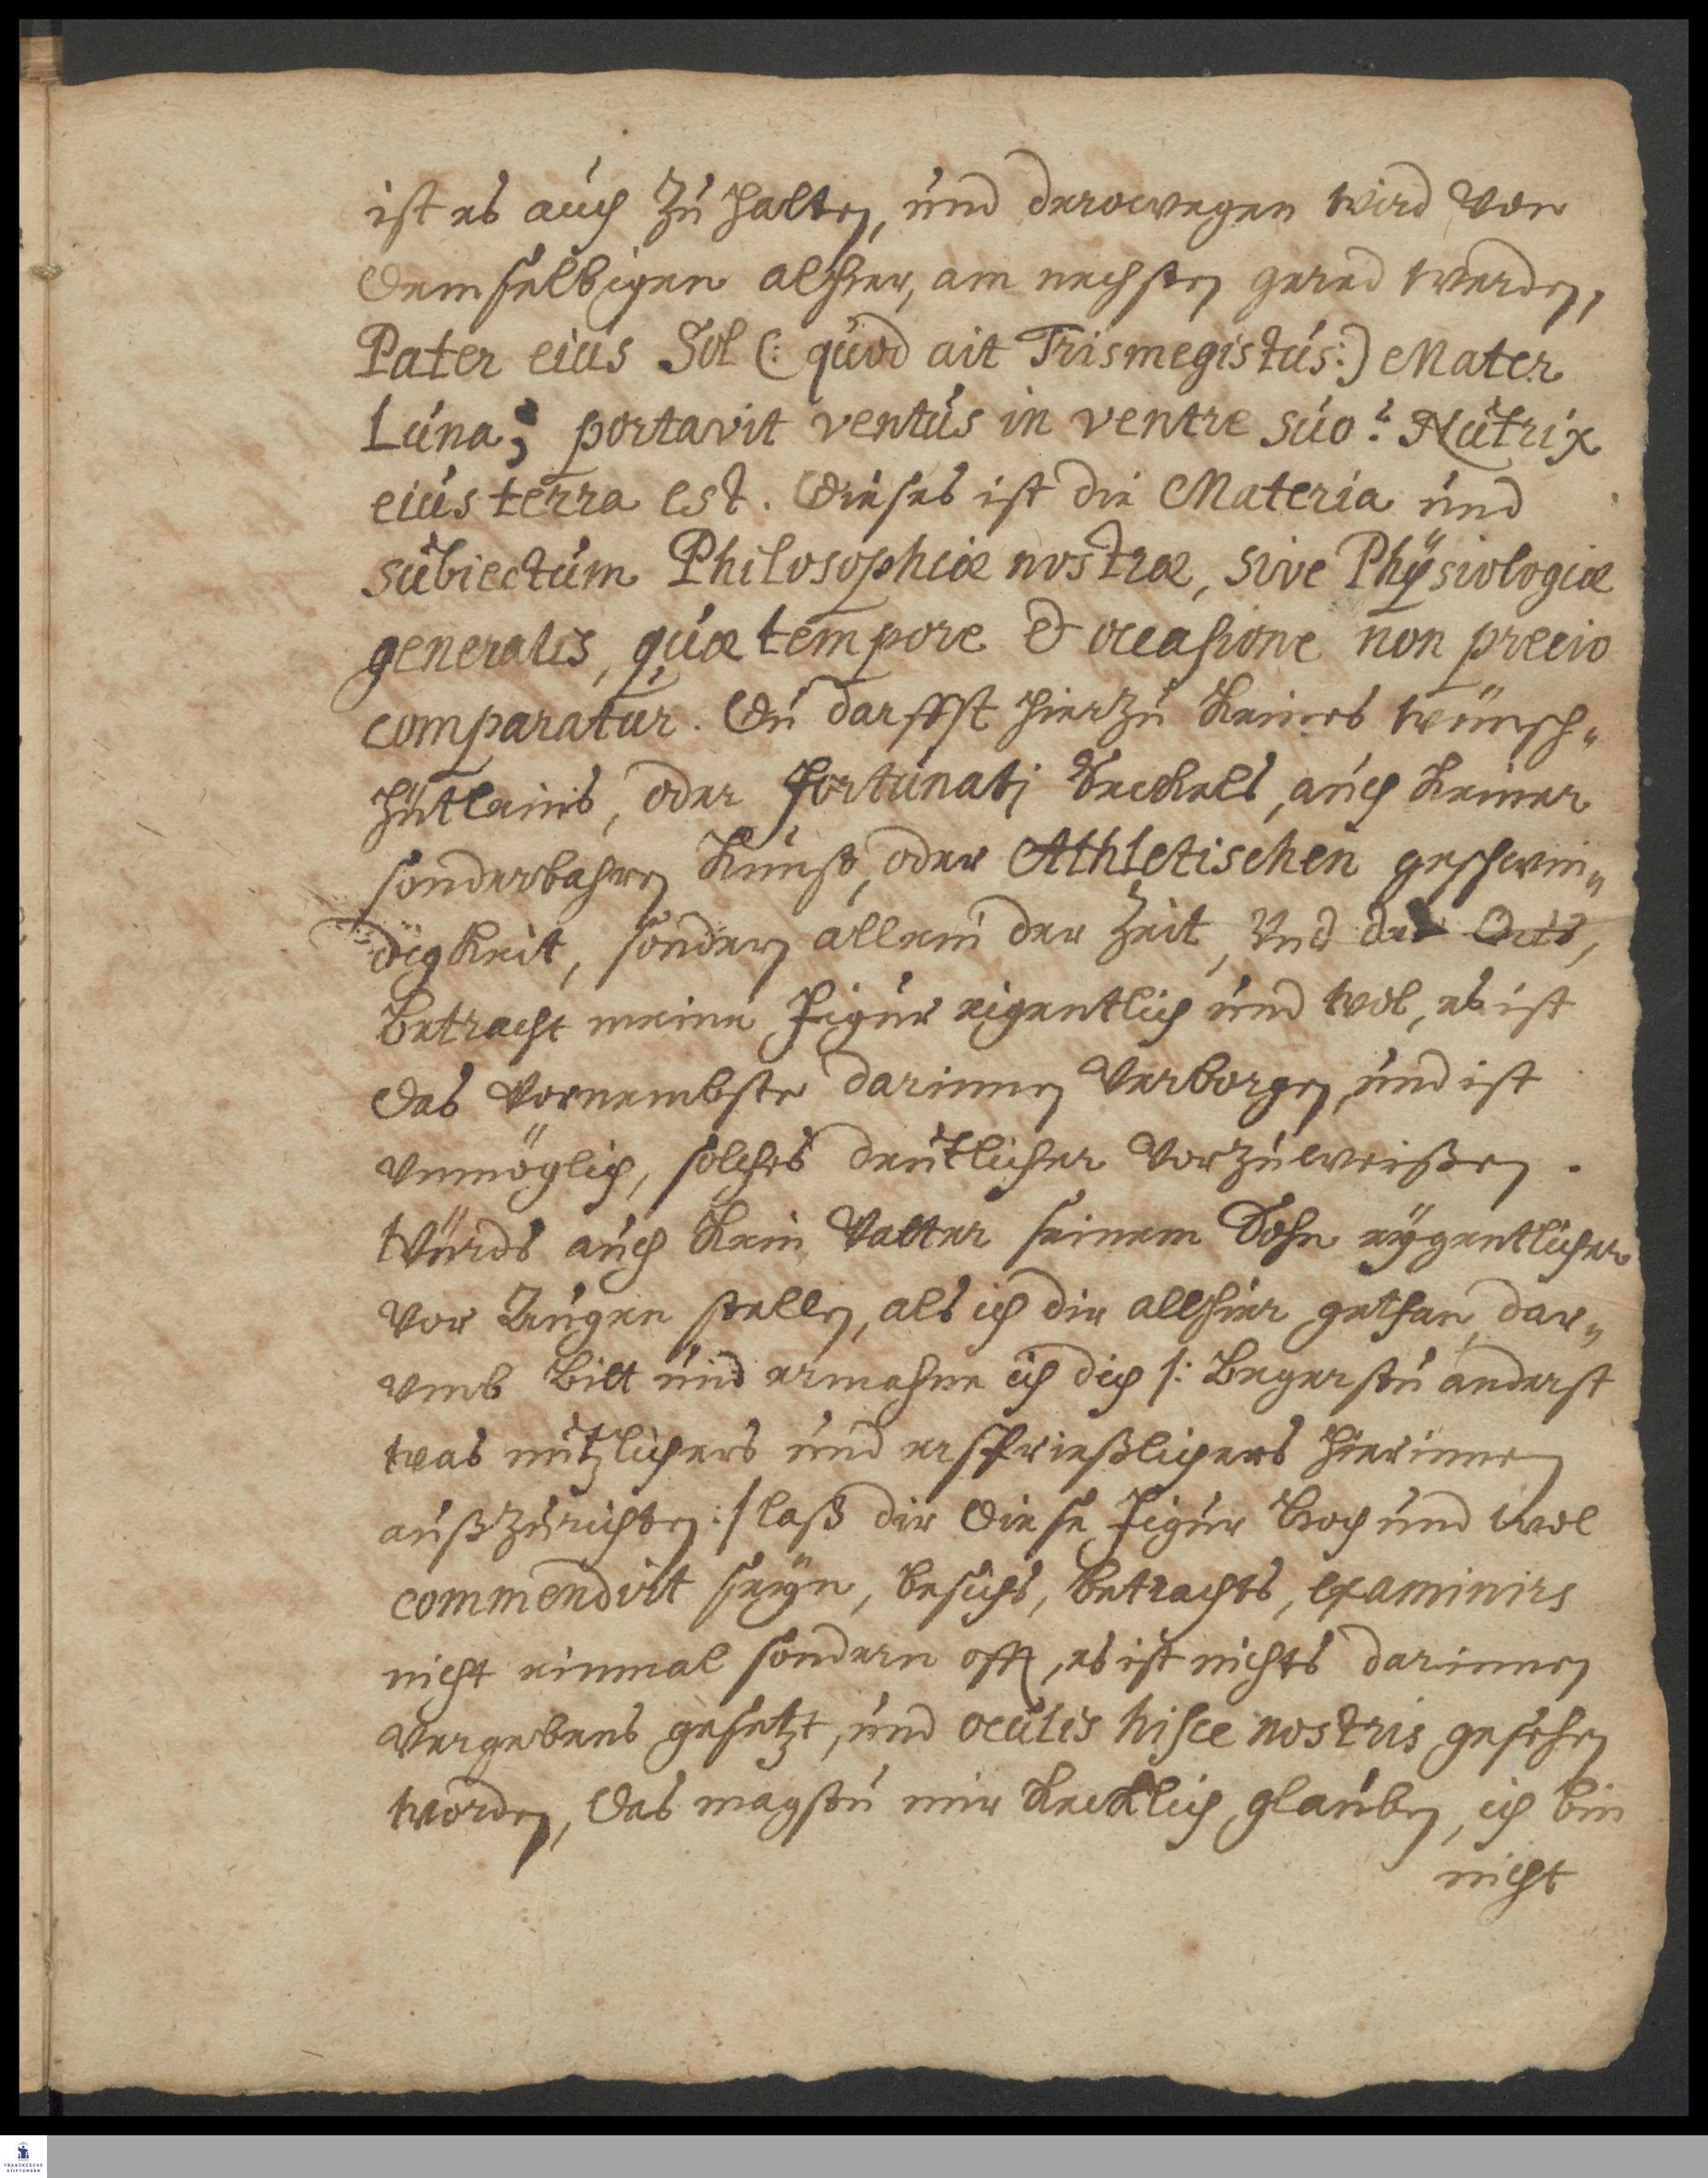 ist es auch zu halten, und derowegen wird von
demselbigen alhier, am nechsten gered werden,
Pater eius Sol (: quod ait Trismegistus:) Mater
Luna; portavit ventus in ventre suo: Nutrix
eius terra est. Dieses ist die Materia und
subiectum Philosophiæ nostræ, sive Physiologiæ
generalis, quæ tempore & occasione non precio
comparatur. Du darffst hierzu keines wünsch„
hütleins, oder Fortunati Seckels, auch keiner
sonderbahren Kunst, oder Athletischen geschwin„
digkeit, sondern allein der Zeit, Vnd des Orts,
Betracht meine Figur eigentlich und wol, es ist
das vornembste darinnen verborgen, und ist
vnmöglich, solches deutlicher vorzuweißen.
Würds auch kein Vatter seinem Sohn eÿgentlicher
vor Augen stellen, als ich dir allhier gethan, dar„
vmb bitt und ermahne ich dich /: begerstu anderst
was nutzlichers und ersprießlichers hierinnen
außzurichten :/ laß dir diese Figur hoch und wol
commendirt seÿn, besichs, betrachts, examinirs
nicht einmal sondern offt, es ist nichts darinnen
vergebens gesetzt, und oculis hisce nostris gesehen
worden, das magstu mir kecklich glauben, ich bin
nicht
FRANCKESCHE
STIFTUNGEN